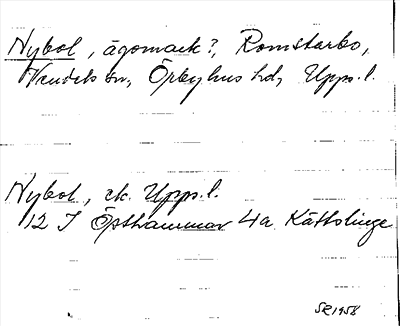 Nybol, ägomark?, Romstarbo,
Vendels sn, Örbyhus hd, Upps. l.
Nybol, ek. Upps. l.
12 I Östhammar 4a Kättslinge
SR 1958